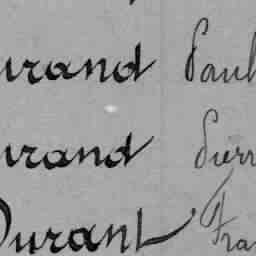 urand Paul
urand Pierr
Durant Fra